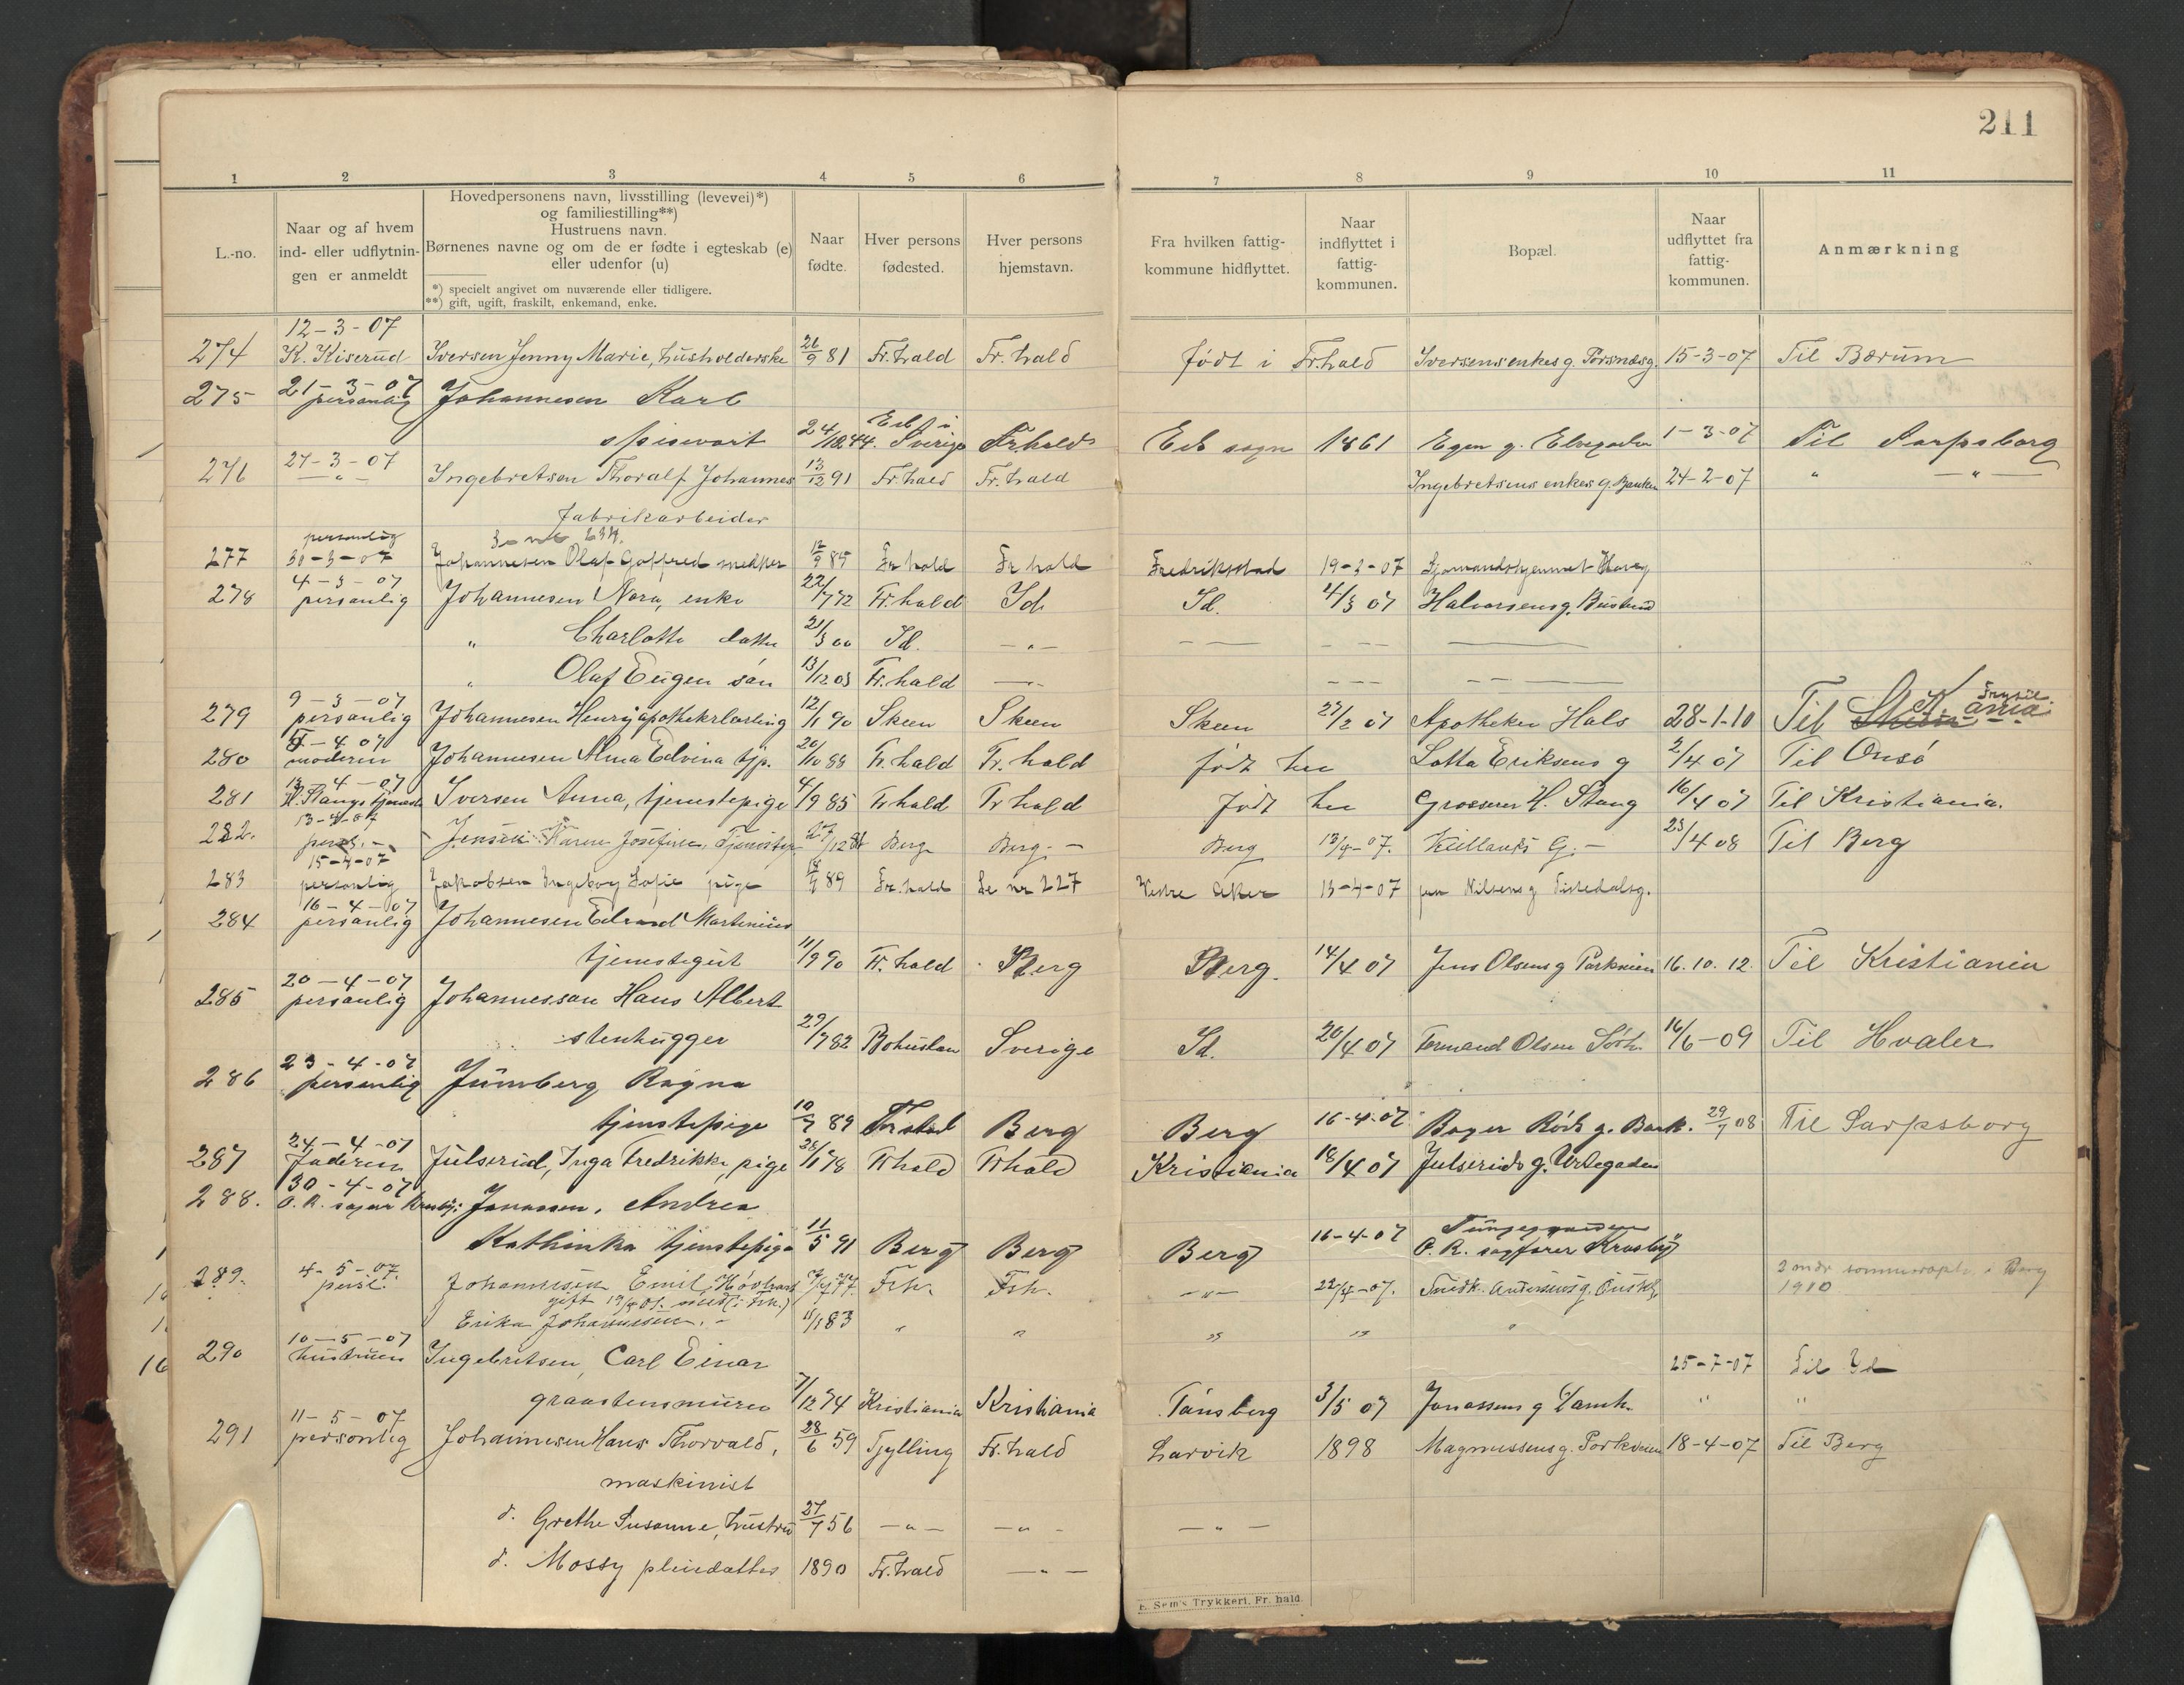 211
1 2 3 4 5 6 7 8 9 10 11
L.-no.
Naar og af hvem
ind- eller udflytnin-
gen er anmeldt
Hovedpersonens navn, livsstilling (levevei)*)
og familiestilling**)
Hustruens navn.
Børnenes navne og om de er fødte i egteskab (e)
eller udenfor (u)
*) specielt angivet om nuværende eller tidligere.
**) gift, ugift, fraskilt, enkemand, enke.
Naar
fødte.
Hver persons
fødested.
Hver persons
hjemstavn.
Fra hvilken fattig-
kommune hidflyttet.
Naar
indflyttet i
fattig-
kommunen.
Bopæl.
Naar
udflyttet fra
fattig-
kommunen.
Anmærkning
12-3-07
274 K. Kiserud Iversen Jenny Marie, husholderske 26/9 81 Fr.hald Fr. hald født i Fr.hald Iversens enkes g. Porsnæsg. 15-3-07 Til Bærum
21-3-07
275 personlig Johannesen Karl
spisevært 24/12 44. Eds i Sverige Fr.hald Eds sogn 1861 Egen g. Elvegaden 1-3-07 Til Sarpsborg
27-3-07
276 -"- Ingebretsen Thoralf Johannes 13/12 91 Fr.hald Fr.hald Ingebretsens enkes g. Banken 24-2-07 " -"-
fabrikarbeider
personlig
277 30-3-07 Johannesen Olaf Gotfred snedker 12/9 85 Fr hald Fr hald Fredrikstad 19-3-07 Sjømandshjemmet
4-3-07
278 personlig Johannesen Nora, enke 22/7 72 Fr.hald Id Id. 4/3 07 Halvorsens g.
" Charlotte datter 21/3 00 Id. -"-
" Olaf Eugen søn 13/12 03 Fr.hald -"-
9-3-07
279 personlig Johannesen Henry apothekerlærling 12/1 90 Skeen Skeen Skeen 27/2 07 Apotheker Hals 28-1-10 Til Skeen Kr.ania Trysil
5-4-07
280 moderen Johannesen Alma Edvina tjp. 20/10 88 Fr.hald Fr.hald født her Lotta Eriksens g 2/4 07 Til Onsø
13-4-07
281 H. Stangs tjeneste Iversen Anna, tjenestepige 4/9 85 Fr hald Fr hald født her Grosserer H. Stang 16/4 07 Til Kristiania.
13-4-07
282. pers. - Jensen Karen Josefine, Tjenestep. 27/12 Berg Berg. - Berg 13/4-07. Kiellands G. - 23/4 08 Til Berg
15-4-07
283 personlig Jakobsen Ingeborg Sofie pige 89 Fr.hald Se nr 227 Vestre Aker 13-4-07 Nilsens g Tistedalsg.
16-4-07
284 personlig Johannesen Edvard Martinius
tjenestegut 11/9 90 Fr.hald Berg Berg. 14/4 07 Jens Olsens g Parkveien 16.10.12. Til Kristiania
20-4-07
285 personlig Johannesson Hans Albert
stenhugger 29/7 82 Bohuslen Sverige Id. 20/4 07 Formand Olsen Sørh. 16/6-09 Til Hvaler
23-4-07
286 personlig Jûmberg Ragna
tjenstepige 10/7 89 Berg Berg 16-4-07 Bager Röds g. Bank. 29/7 08 Til Sarpsborg
24-4-07
287 Faderen Julserud, Inga Fredrikke, pige 28/1 78 Frhald Frhald Kristiania 18/4 07 Julseruds g. Urtegaden
30-4-07
288. O.R. sagfør Krosby. Jonassen, Andrea
Kathinka tjenstepige 11/5 91 Berg Berg Berg 16-4-07 O.R. sagfører Krosby
4-5-07.
289. persl. Johannesen Emil Håvard 77. Frh. Frh. -"- 22/4-07. Snedk. Andersens g. 1910
gift 07. med (i Frh.)
Erika Johannesen. - 11/1 83 " " " " "
10-5-07
290 hustruen Ingebretsen, Carl Einar 25-7-07 Til Id
graastensmurer 7/12 74 Kristiania Kristiania Tønsberg 3/5 07 Jonassens g Damh. " "
11-5-07
291 personlig Johannesen Hans Thorvald, 28/6 59 Tjylling Fr.hald Larvik 1898 Magnussens g. Parkveien 18-4-07 Til Berg
maskinist
d. Grethe Susanne, hustru 27/7 56 -"- -"- -"-
d. Mossy pleiedatter 1890 Fr.hald -"-
E. Sem's Trykkeri, Fr. hald.